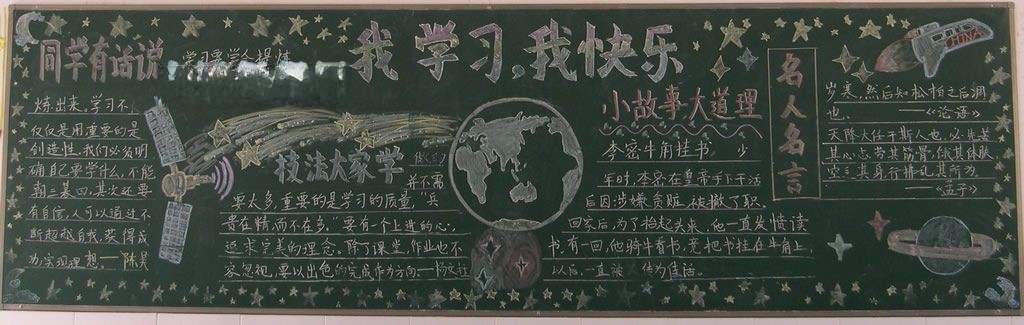 我学习、我快乐
同学有话说
炼出来,学习不
仅仅是用重要的是
创造性,我们必须明
确自己要学什么,不能
朝三暮四,其次还要
有自信,人可以通过不
断超越自我,获得成
为实现理想。——陈昊
技法大家学
并不需
要太多,重要的是学习的质量,“兵
贵在精而不在多。”要有个上进的心,
追求完美的理念。除了课堂,作业也不
容忽视,要以出色的完成作为方向
小故事大道理
李密牛角挂书 少
年时,李密在皇帝手下干活
后因涉嫌 被撤了职。
回家后,为了抬起头来,他一直发愤读
书,有一回,他骑牛看书,竟把书挂在牛角上,
以后,一直被 传为佳话。
名人名言
岁寒,然后知松柏之后凋
也。 ——《论语》
天降大任于斯人也,必先苦
其心志,劳其筋骨,饿其体肤,
空乏其身,行拂乱其所为。
——《孟子》
CHINA